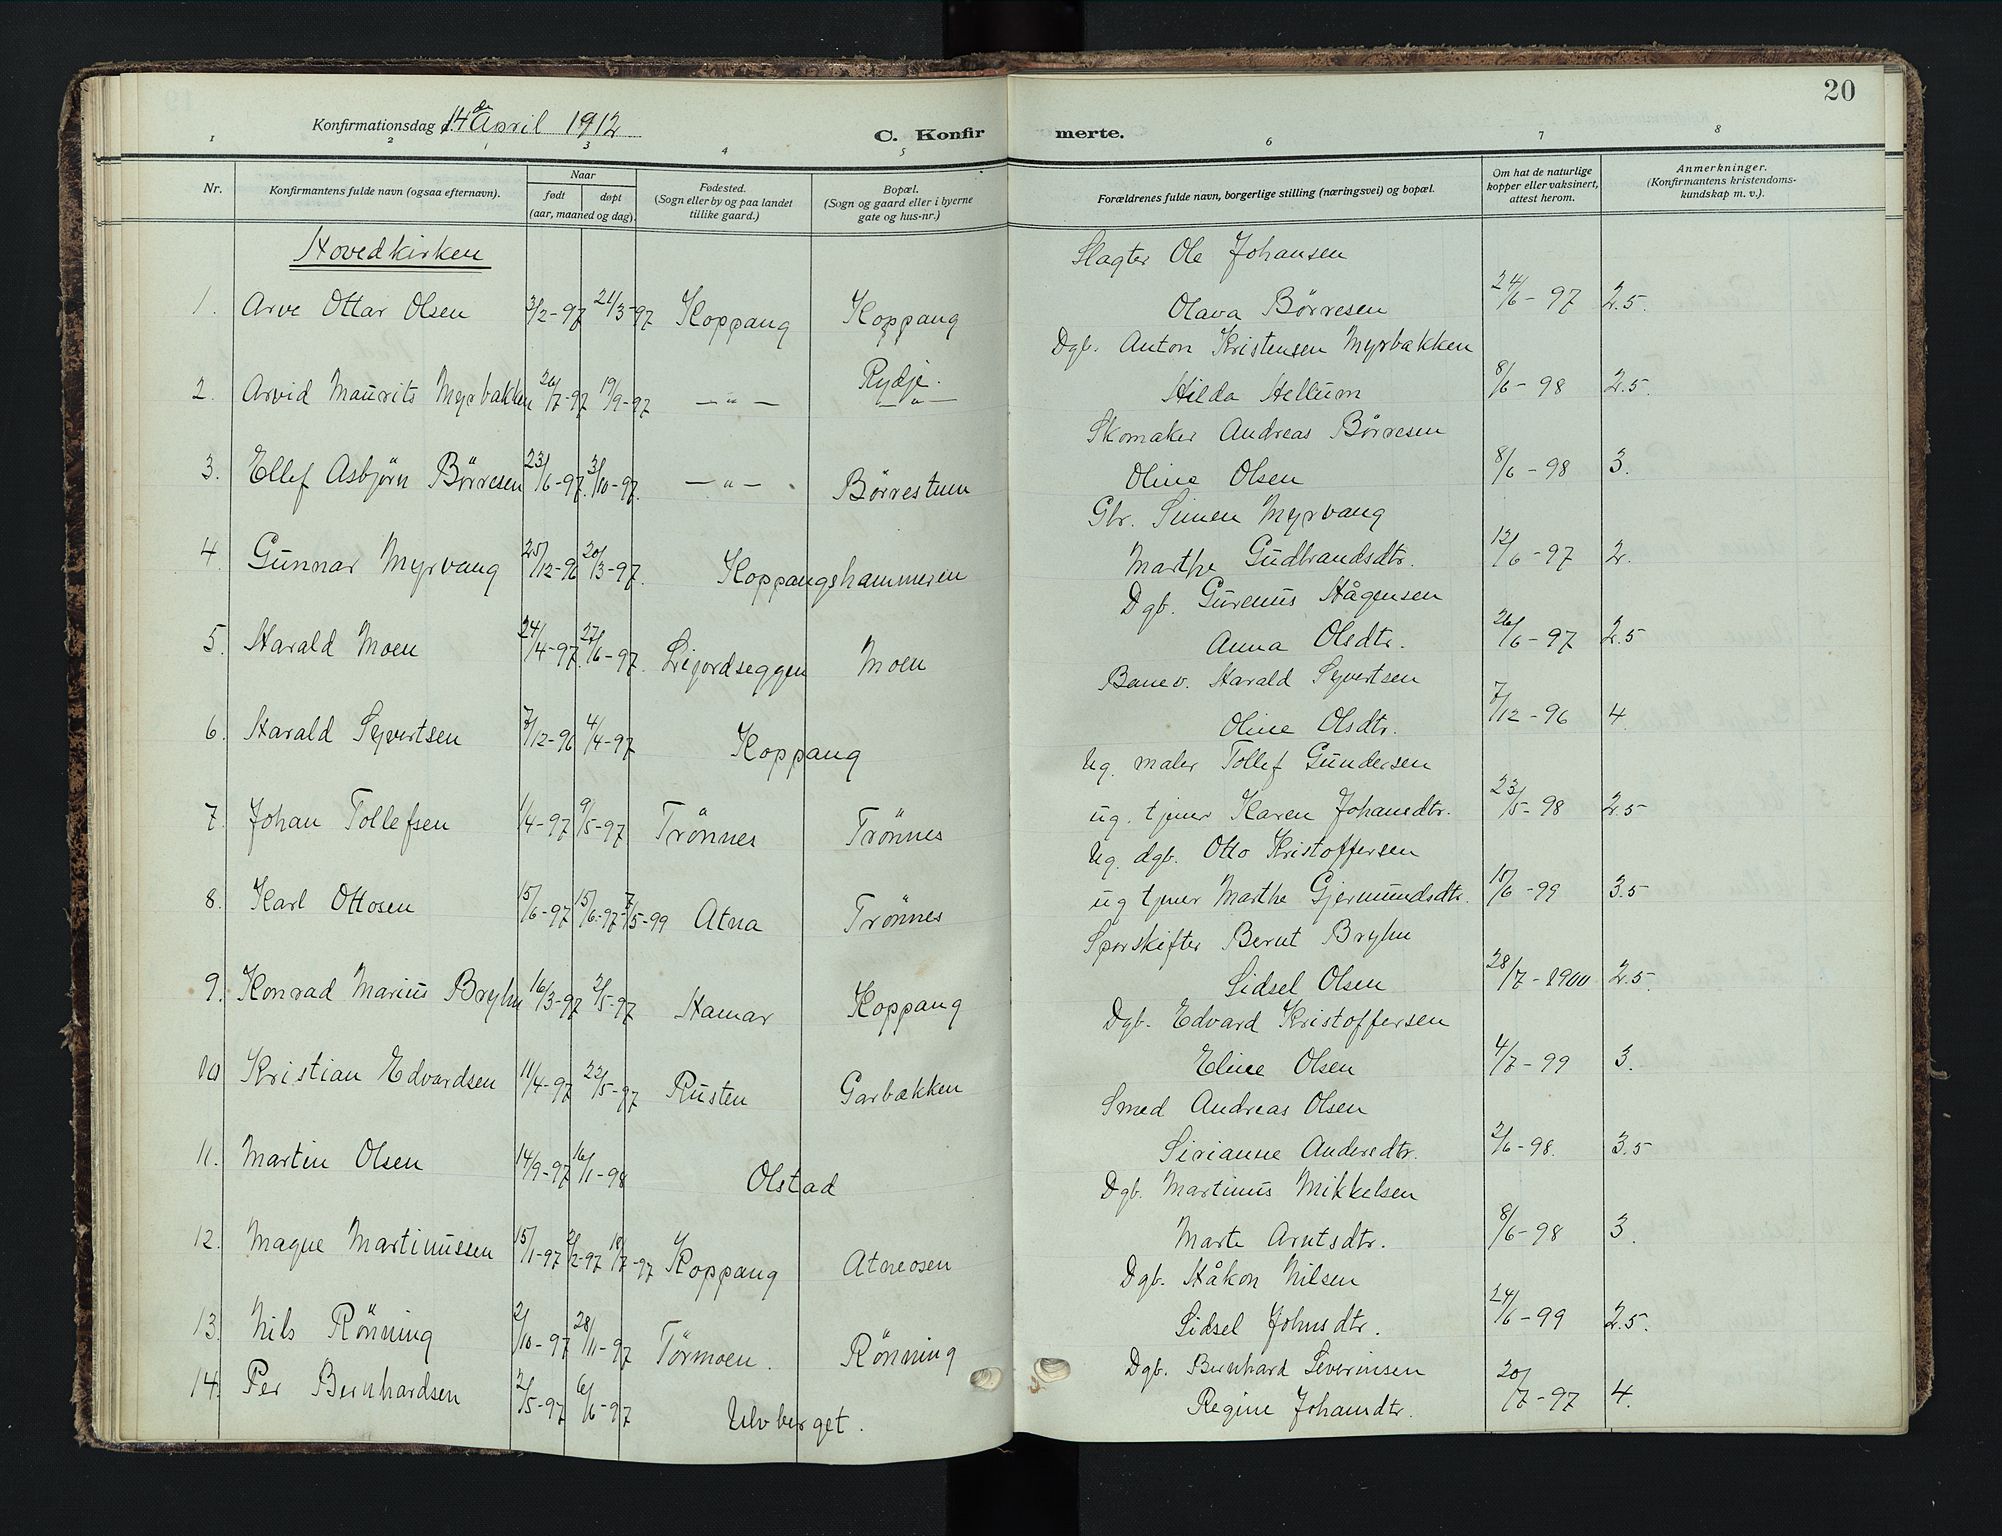 20
Konfirmationsdag 14de April 1912
C. Konfirmerte.
1 2 3 4 5 6 7 8
Nr. Konfirmantens fulde navn (ogsaa efternavn). Naar født døpt (aar, maaned og dag). Fødested. (Sogn eller by og paa landet tillike gaard.) Bopæl. (Sogn og gaard eller i byerne gate og hus-nr.) Forældrenes fulde navn, borgerlige stilling (næringsvei) og bopæl. Om hat de naturlige kopper eller vaksinert, attest herom. Anmerkninger. (Konfirmantens kristendomskundskap m. v.).
Hovedkirken
Slagter Ole Johansen
1. Arve Ottar Olsen 3/2-97 21/3-97 Koppang Koppang Olava Børresen 24/6-97 2.5.
Dgb. Anton Kristensen Myrbakken
2. Arvid Maurits Myrbakken 26/7-97 19/9-97 —"— Rydje. —"— Hilda Hellum 8/6-98 2.5.
Skomaker Andreas Børresen
3. Ellef Asbjørn Børresen 23/6-97. 3/10-97. —"— Børrestuen Oline Olsen 8/6-98 3.
Gbr. Simen Myrvang
4. Gunnar Myrvang 25/12-96 20/3-97. Koppangshammeren Marthe Gudbrandsdtr. 12/6-97 2.
Dgb. Gurenus Hågensen
5. Harald Moen 24/4-97. 27/6-97. Lijordseggen Moen Anna Olsdtr. 26/6-97 2.5
Banev. Harald Syvertsen
6. Harald Syvertsen 7/12-96 4/4-97 Koppang Oline Olsdtr. 7/12-96 4.
Ug. maler Tollef Gundersen
7. Johan Tollefsen 1/4-97 9/5-97 Trønnes Trønnes ug. tjener Karen Johansdtr. 23/5-98 2.5
Ug. dgb. Otto Kristoffersen
8. Karl Ottosen 15/6-97 15/6-97-7/5-99 Atna Trønnes ug tjener Marthe Gjermundsdtr. 15/6-99 3.5
Sporskifter Bernt Bryhn
9. Konrad Marius Bryhn 16/3-97 2/5-97 Hamar Koppang Sidsel Olsen 28/7-1900 2.5.
Dgb. Edvard Kristoffersen
10 Kristian Edvardsen 11/4-97 22/5-97 Rusten Garbækken Eline Olsen 4/7-99 3.
Smed Andreas Olsen
11. Martin Olsen 14/9-97 16/1-98 Olstad Sirianne Andersdtr. 2/6-98. 3.5
Dgb. Martinus Mikkelsen
12. Magne Martinussen 15/1-97 2/2-97 18/7-97 Koppang Atneosen Marte Arntsdtr. 8/6-98 3.
Dgb. Håkon Nilsen
13. Nils Rønning 2/10-97 28/11-97 Tørmoen. Rønning Sidsel Johnsdtr. 24/6-99 2.5.
Dgb. Bernhard Severinsen
14. Per Bernhardsen 2/5-97 6/6-97 Ulvberget. Regine Johansdtr. 20/7-97 4.